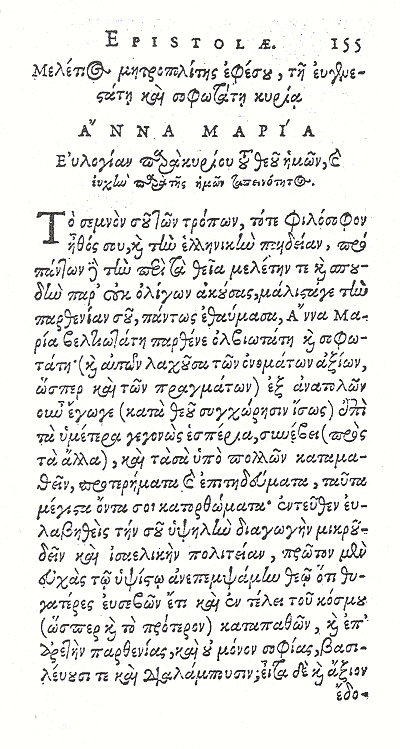 EPISTOLÆ. 155
Μελέτιος μητροπολίτης ἐφέσου, τῇ εὐγενε-
στάτη καὶ σοφωτάτη κυρία
ἌΝΝΑ ΜΑΡΊΑ
Εὐλογίαν παρὰ κυρίου τοῦ θεοῦ ἡμῶν, καὶ
εὐχὴν παρὰ τῆς ἡμῶν ταπεινότητος.
Τὸ σεμνὸν σοῦ τῶν τρόπων, τότε φιλόσοφον
ἦθός σου, καὶ τὴν ἑλληνικὴν παιδείαν, πρὸ
πάντων δὲ τὴν περὶ τὰ θεῖα μελέτην τε καὶ σπου-
δὴν παρ' οὐκ ὀλίγων ἀκούσας, μάλιστάγε τὴν
παρθενίαν σοῦ, πάντως ἐθαύμασα, Ἄννα Μα-
ρία βελτιωτάτη παρθένε ὀλβιωτάτη καὶ σοφω-
τάτη· (καὶ αὐτῶν λαχοῦσα τῶν ὀνομάτων ἀξίων,
ὥσπερ καὶ τῶν πραγμάτων) ἐξ ἀνατολῶν
οὖν ἔγωγε (κατὰ θεοῦ συγχώρησιν ἴσως) ἐπὶ
τὰ ὑμέτερα γεγονὼς ἑσπέρια, συνέβει (πρὸς
τὰ ἄλλα), καὶ τὰ σὰ ὑπὸ πολλῶν καταμα-
θεῖν, προτερήματα καὶ ἐπιτηδεύματα, ταῦτα
μέγιστα ὄντα σοι κατορθώματα· ἐντεῦθεν εὐ-
λαβηθεὶς τήν σοῦ ὑψηλὴν διαγωγὴν μικροῦ-
δεῖν καὶ ἰσαγγελικὴν πολιτείαν, πρῶτον μὲν
εὐχὰς τῷ ὑψίστῳ ἀνεπεμψάμην θεῷ ὅτι θυ-
γατέρες εὐσεβῶν ἔτι καὶ ἐν τέλει τοῦ κόσμου
(ὥσπερ καὶ τὸ πρότερον) καταπαθῶν, καὶ ἐπ'
ἀρετὴν παρθενίας, καὶ οὐ μόνον σοφίας, βασι-
λεύουσι τε καὶ διαλάμπουσιν; εἶτα δὲ καὶ ἄξιον
ἔδο-